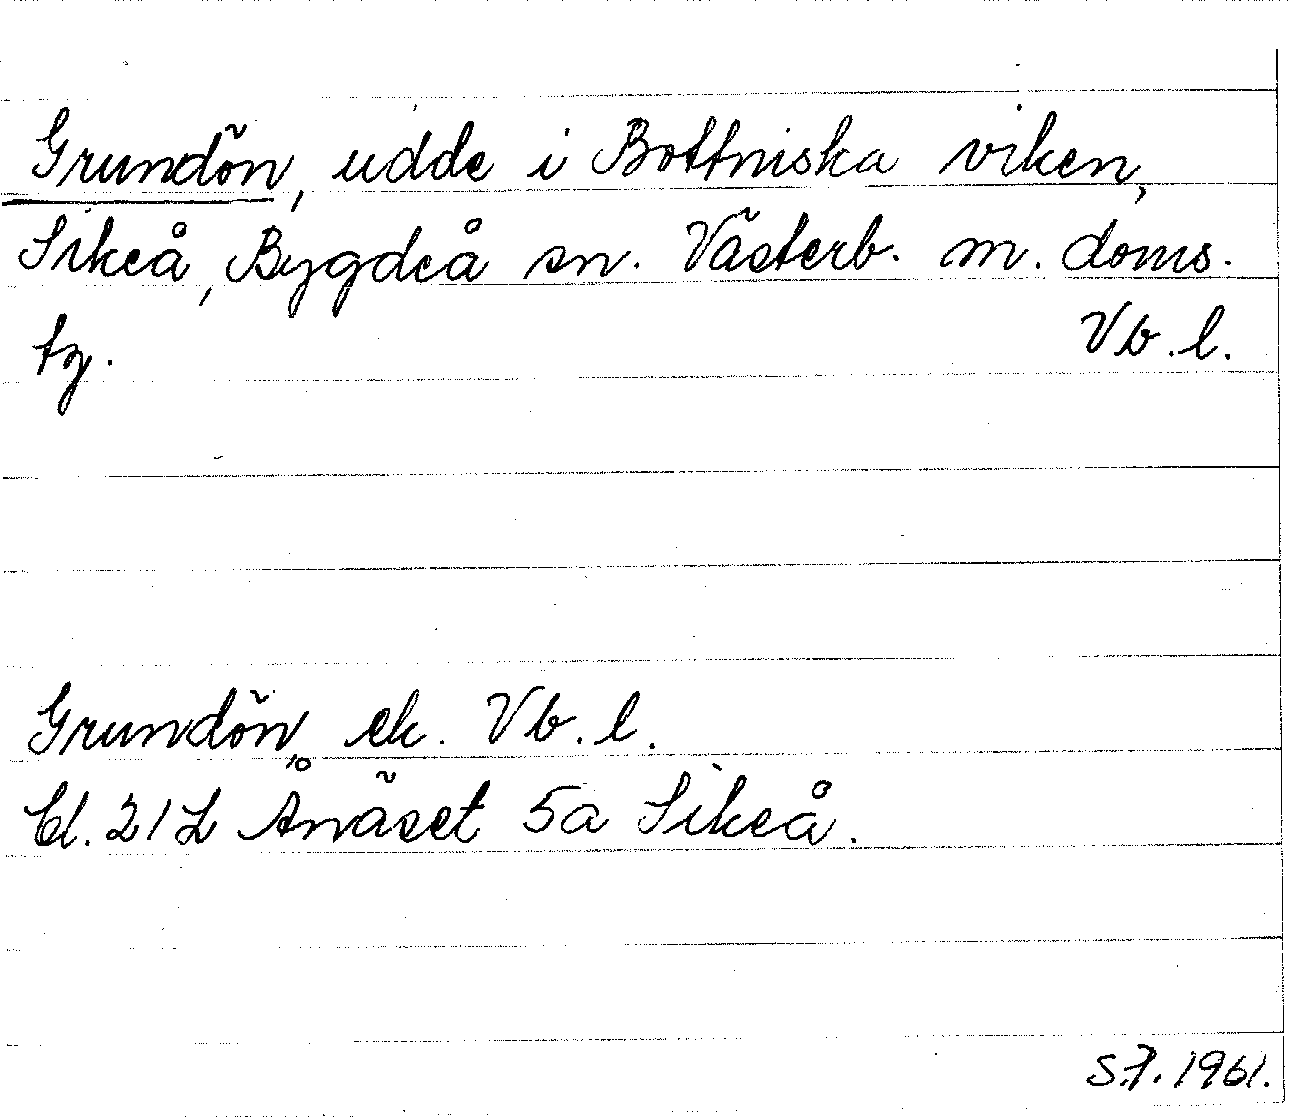 Grundön, udde i Bottniska viken,
Sikeå, Bygdeå sn. Västerb. m. doms.
tg. Vb. l.
Grundön, ek. Vb. l.
Bl. 21L Ånäset 5a Sikeå.
S.F. 1961.